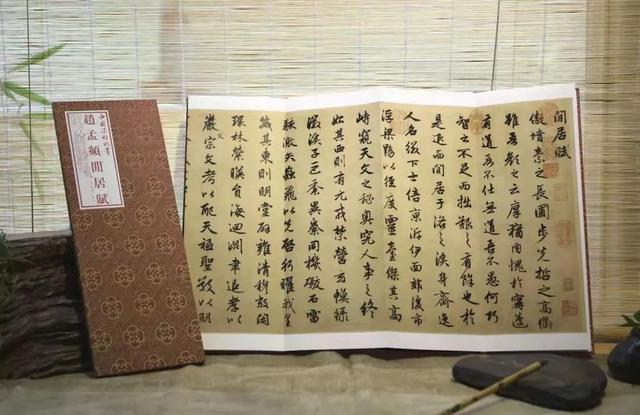 趙孟頫閒居賦
閒居賦
傲墳素之長圃步先哲之高衢
雖吾顏之云厚猶內愧於甯蘧
有道吾不仕無道吾不愚何巧
智之不足而拙艱之有餘也於
是退而閒居于洛之涘身齊逸
人名綴下士倍京泝伊面郊後市
浮梁黝以徑度靈臺傑其高
峙窺天文之秘奧究人事之終
始其西則有元戎禁營玄幙綠
徽溪子巨黍異絭同機礮石雷
駭激矢虻飛以先啓行曜我皇
威其東則明堂辟雍清穆敞閑
環林縈映員海迴淵聿追孝以
嚴父宗文考以配天祗聖敬以明